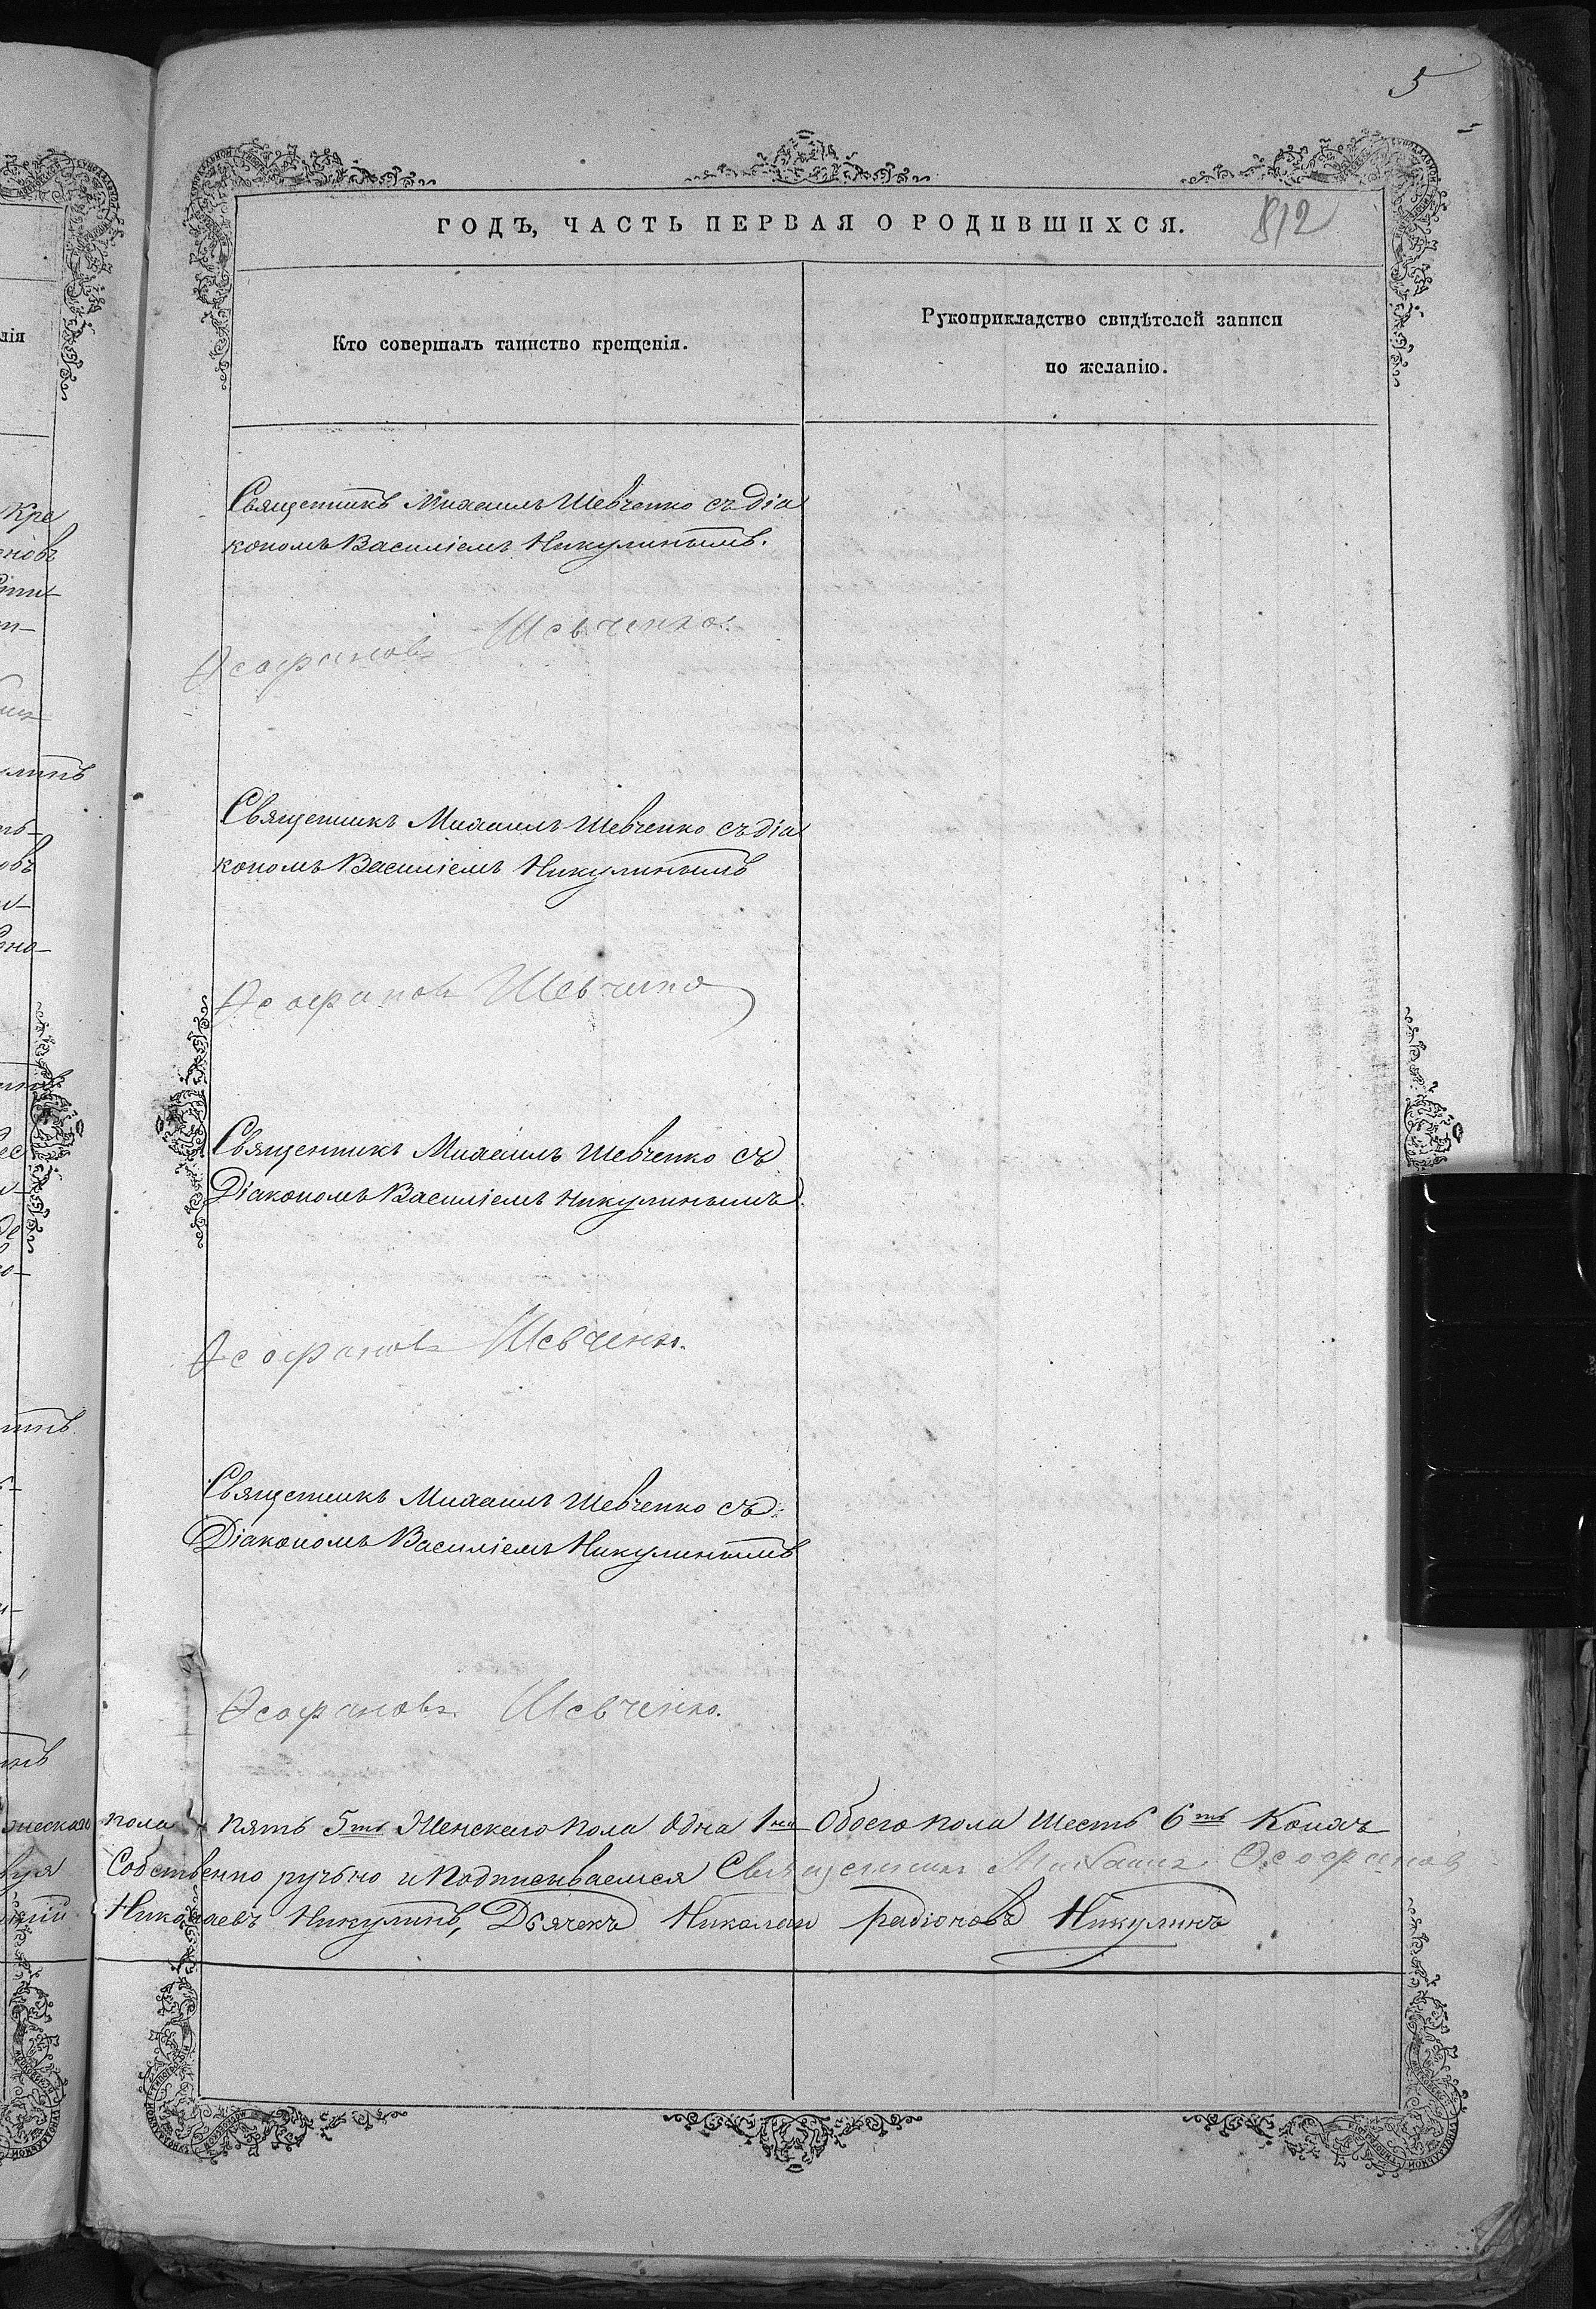 5
ГОДЪ, ЧАСТЬ ПЕРВАЯ О РОДИВШИХСЯ.
812
Кто совершалъ таинство крещенія.
Рукоприкладство свидѣтелей записи
по желанію.
Священникъ Михаилъ Шевченко съ діа
кономъ Василіемъ Никулинымъ.
Ѳеофановъ Шевченко.
Священникъ Михаилъ Шевченко съ діа
кономъ Василіемъ Никулинымъ
Ѳеофановъ Шевченко
Священникъ Михаилъ Шевченко съ
Діакономъ Василіемъ Никулинымъ
Ѳеофановъ Шевченко.
Священникъ Михаилъ Шевченко съ
Діакономъ Василіемъ Никулинымъ
Ѳеофановъ Шевченко.
пола пять 5ть Женскаго пола одна 1на Обоего пола Шесть 6ть Коихъ
Собственно ручьно и Подписиваемся Священникъ Михаилъ Ѳеофановъ
Николаевъ Никулинъ, Дьячекъ Николай радіоновъ Никулинъ